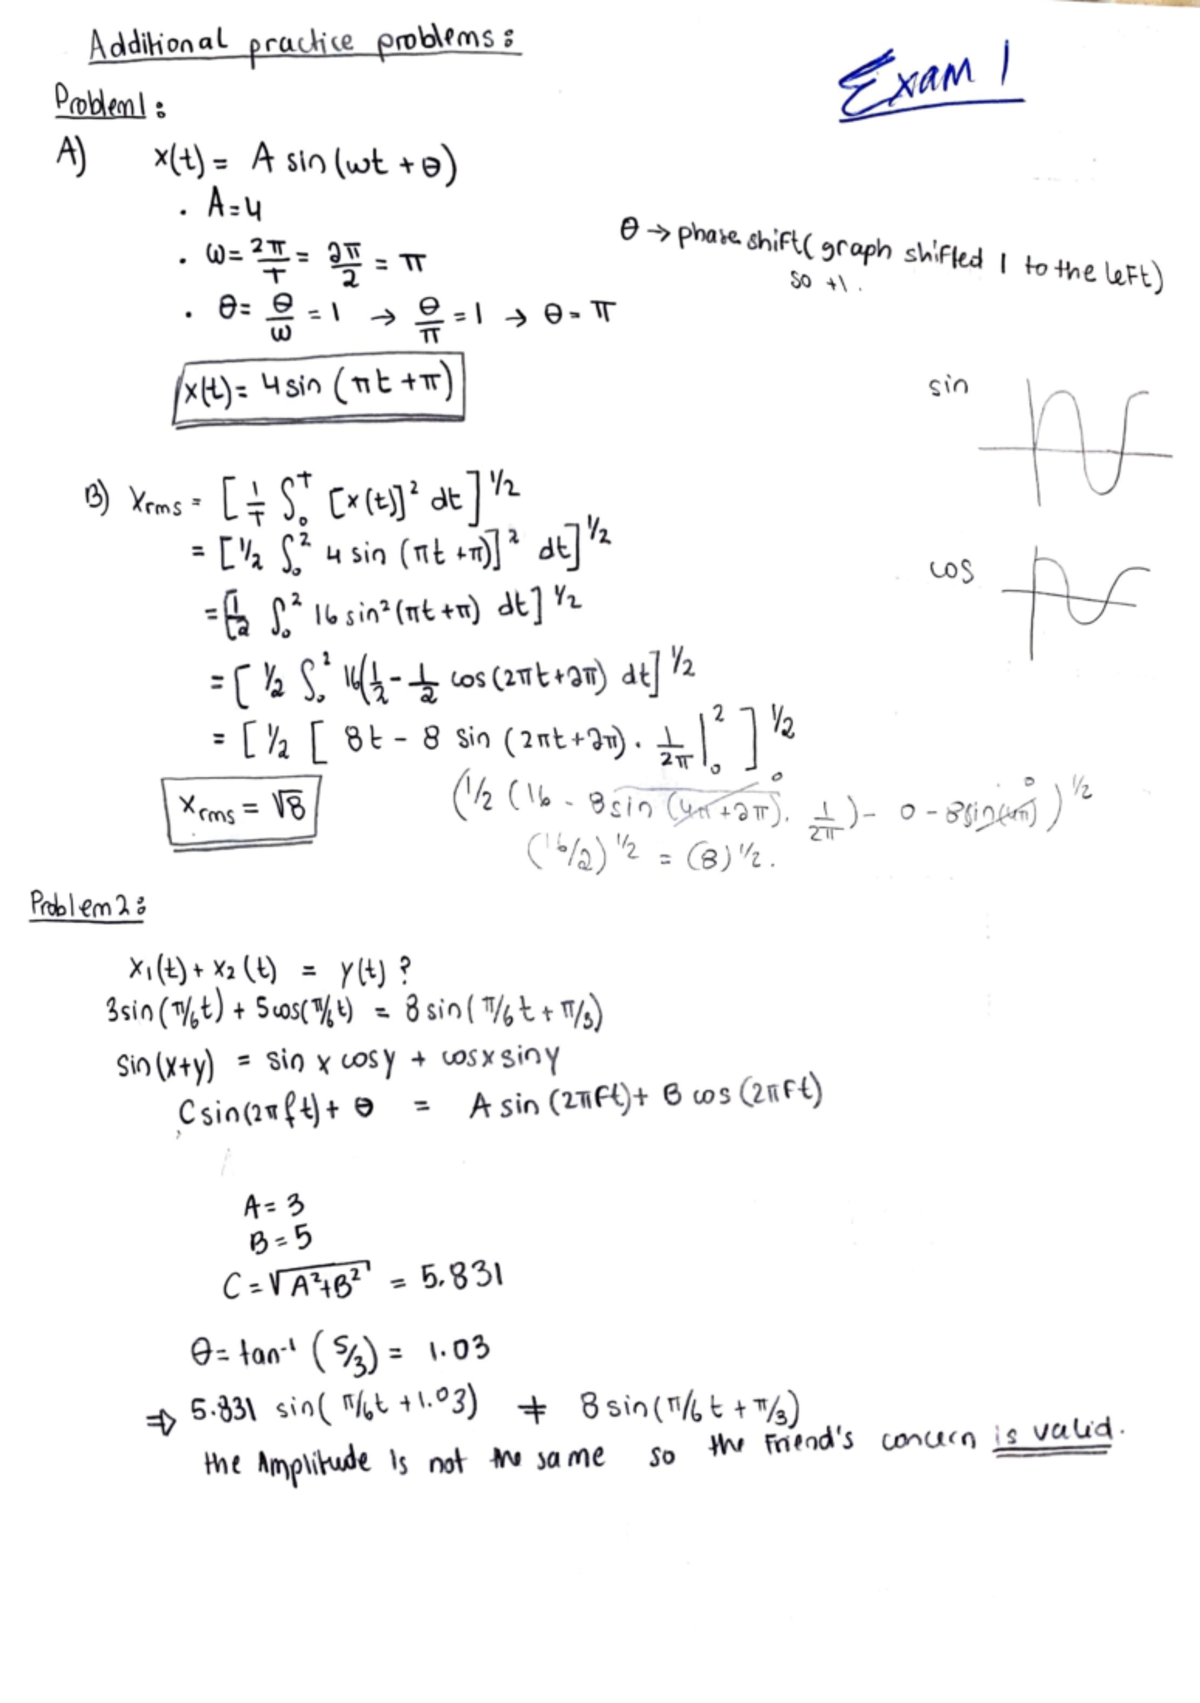 Additional practice problems:
Exam 1
Problem 1:
A) x(t) = A sin(ωt + θ)
• A=4
• ω = 2π/T = 2π/2 = π
θ → phase shift (graph shifted 1 to the left)
so +1.
• θ = θ/ω = 1 → θ/π = 1 → θ = π
x(t) = 4 sin (πt + π)
sin
B) Xrms = [1/T ∫₀ᵀ [x(t)]² dt]^1/2
= [1/2 ∫₀² 4 sin (πt + π)]² dt]^1/2
cos
= [1/2 ∫₀² 16 sin² (πt + π) dt]^1/2
= [1/2 ∫₀² 16(1/2 - 1/2 cos (2πt + 2π) dt]^1/2
= [1/2 [8t - 8 sin (2πt + 2π) · 1/2π |₀² ]^1/2
Xrms = √8
(1/2 (16 - 8 sin (4π + 2π) · 1/2π) - 0 - 8 sin(4π) )^1/2
0 0
(16/2)^1/2 = (8)^1/2.
Problem 2:
x₁(t) + x₂(t) = y(t) ?
3 sin(π/6 t) + 5 cos(π/6 t) = 8 sin(π/6 t + π/3)
sin(x+y) = sin x cos y + cos x sin y
C sin(2πft) + θ = A sin (2πft) + B cos (2πft)
A = 3
B = 5
C = √A²+B² = 5.831
θ = tan⁻¹ (5/3) = 1.03
⇒ 5.831 sin( π/6 t + 1.03) ≠ 8 sin(π/6 t + π/3)
the Amplitude is not the same so the Friend's concern is valid.